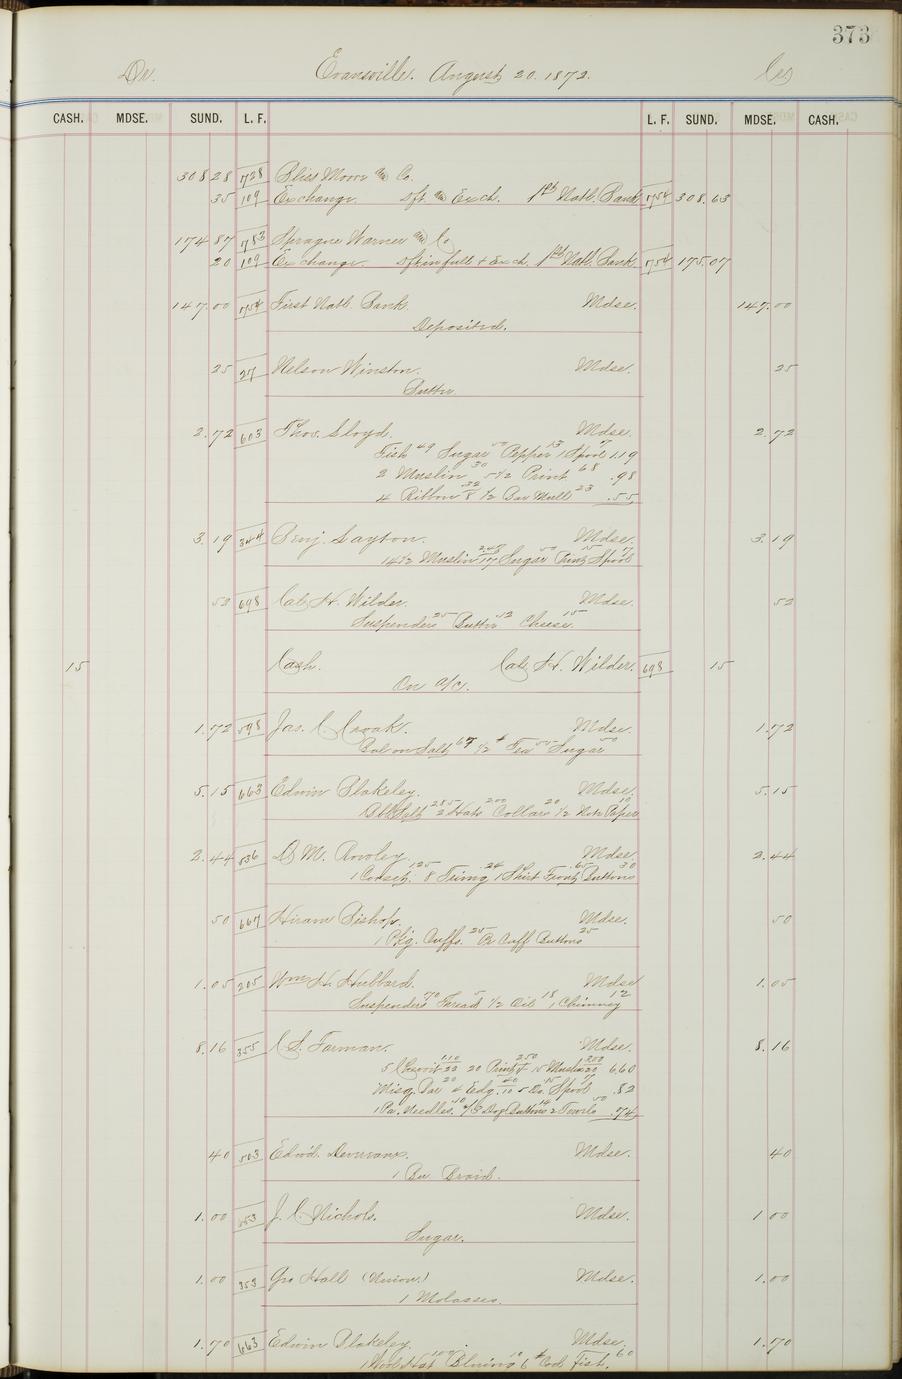 373
Dr. Evansville. August 20. 1872. Cr
CASH. MDSE. SUND. L. F. L. F. SUND. MDSE. CASH.
308 28 728 Bliss Moore & Co.
35 109 Exchange. Dft. & Exch. 1st Natl. Bank 754 308.63
174 87 783 Sprague Warner & Co
20 109 Exchange Dft in full + Exch. 1st Natl. Bank 754 175.07
147.00 754 First Natl. Bank. Mdse. 147.00
Deposited.
25 27 Nelson Winston. Mdse. 25
Butter.
2.72 603 Thos. Lloyd. Mdse. 2.72
Fish 49 Sugar 50 Pepper 13 1 Spool 7 1.19
2 Muslin 30 5 1/2 Print 68 .98
4 Ribbon 32 8 1/2 Bar Mull 23 .55
3.19 344 Benj. Layton. Mdse. 3.19
14 1/2 Muslin 247 17 Sugar 50 Print 15 Spool 7
52 698 Cal. H. Wilder. Mdse. 52
Suspenders 25 Butter 12 Cheese 15
15 Cash. Cal. H. Wilder. 698 15
On a/c.
1.72 598 Jas. C. Croak. Mdse. 1.72
Bal on Salt 67 1/2 # Tea 55 Sugar 50
5.15 663 Edwin Blakeley. Mdse. 5.15
Bbl Salt 285 2 Hats 200 Collars 20 1/2 Note Paper 10
2.44 536 D. M. Rowley. Mdse. 2.44
1 Corset. 125 8 Trimg 24 1 Shirt Front 65 Buttons 30
50 667 Hiram Bishop. Mdse. 50
1 Pkg. Cuffs. 25 Pr Cuff Buttons 25
1.05 205 Wm H. Hubbard. Mdse 1.05
Suspenders 70 Thread 5 1/2 Oil 18 1 Chimney 12
8.16 355 C. S. Forman. Mdse. 8.16
5 110 22 20 Print 250 15 Muslin 20 6.60
Misq. Bar 20 4 Edg. 40 10 5 Do. 15 Spool 7 .82
1 Pa. Needles. 10 Doz Buttons 14 2 Towels 50 .74
40 503 Edwd. Mdse. 40
1 Bu Braid.
1.00 553 J. C. Nichols. Mdse. 1 00
Sugar.
1.00 353 Geo Hall (Union.) Mdse. 1.00
1 Molasses.
1.70 663 Edwin Blakeley. Mdse. 1.70
1 Wool Hat 100 Bluing 10 6 # Cod Fish. 60